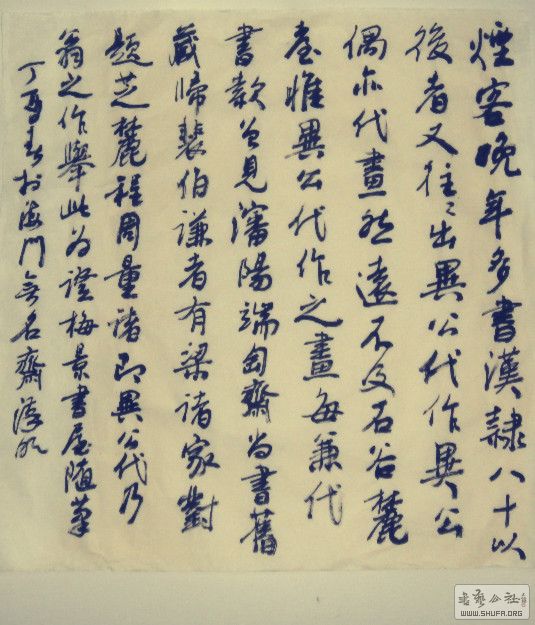 煙客晚年多書漢隸八十以
後者又往々出異公代作異公
偶亦代畫然遠不及石谷麓
臺惟異公代作之畫每兼代
書款曾見瀋陽端匋齋尚書舊
藏帰裴伯謙者有梁諸家對
題芝麓程周量諸即異公代乃
翁之作舉此為證梅景書屋随筆
丁酉春於海門無名齋漢
書藝公社
WWW.SHUFA.ORG